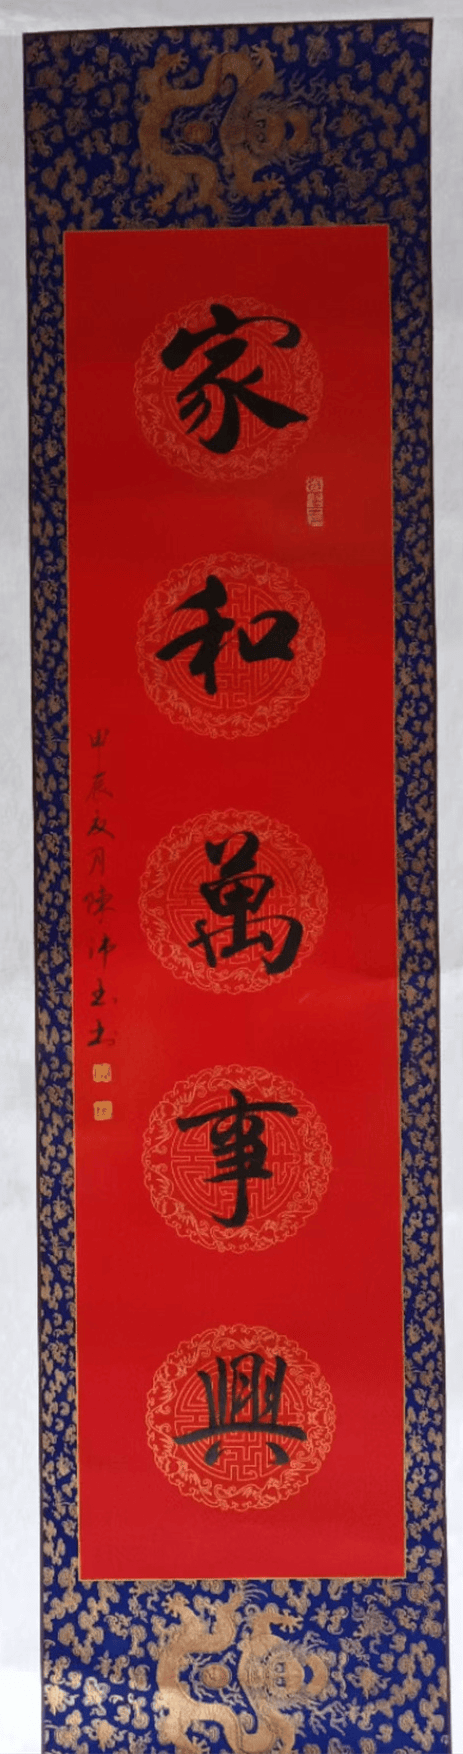 家和萬事興
甲辰夏月陳沛玉书